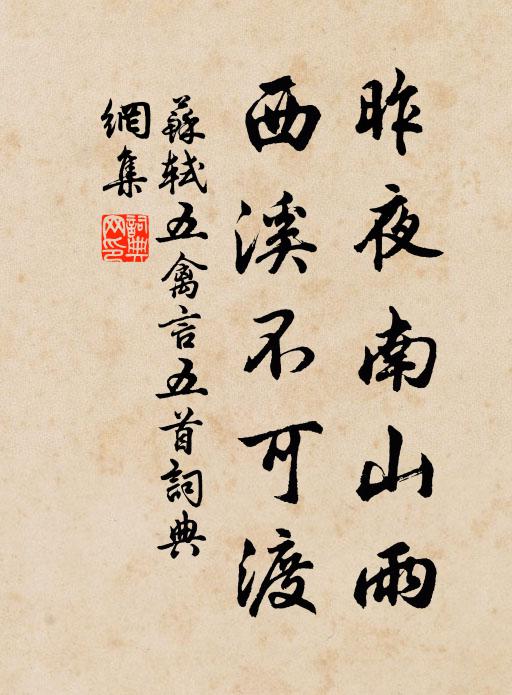 昨夜南山雨
西溪不可渡
蘇軾五禽言五首詞典
網集
詞典網印